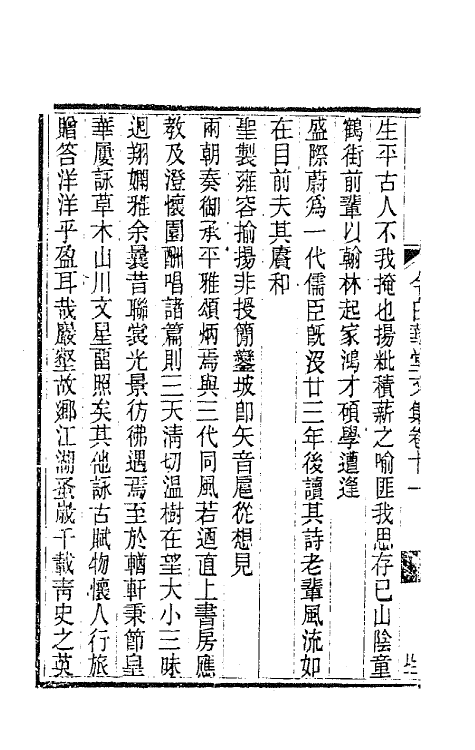 生平古人不我掩也揚粃積薪之喻匪我思存已山陰童
鶴街前輩以翰林起家鴻才碩學遭逢
盛際蔚爲一代儒臣旣沒廿三年後讀其詩老輩風流如
在目前夫其賡和
聖製雍容揄揚非授簡鑾坡卽矢音扈從想見
兩朝奏御承平雅頌炳焉與三代同風若迺直上書房應
敎及澄懷園酬唱諸篇則三天淸切温樹在望大小三昧
迴翔嫻雅余曩昔聯裳光景彷彿遇焉至於輶軒秉節皇
華屢詠草木山川文星留照矣其他詠古賦物懷人行旅
贈答洋洋乎盈耳哉巖壑故鄕江湖蚤歲千載靑史之英
今白華堂文集卷十一